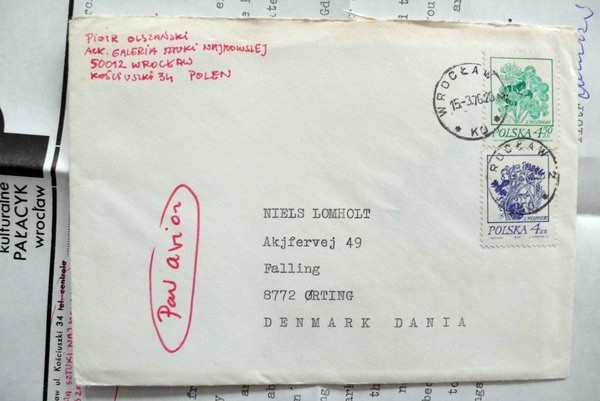 PIOTR OLSZAŃSKI
ACK. GALERIA SZTUKI NAJNOWSZEJ
50012 WROCŁAW
KOŚCIUSZKI 34 POLEN
WROCŁAW 2
15.-3.76.20
KO
POLSKA 4,50
WROCŁAW 2
POLSKA 4 ZŁ
Par avion
NIELS LOMHOLT
Akjfervej 49
Falling
8772 ØRTING
DENMARK DANIA
kulturalne
PAŁACYK
wrocław
ul. Kościuszki 34 tel centrala
Piotr